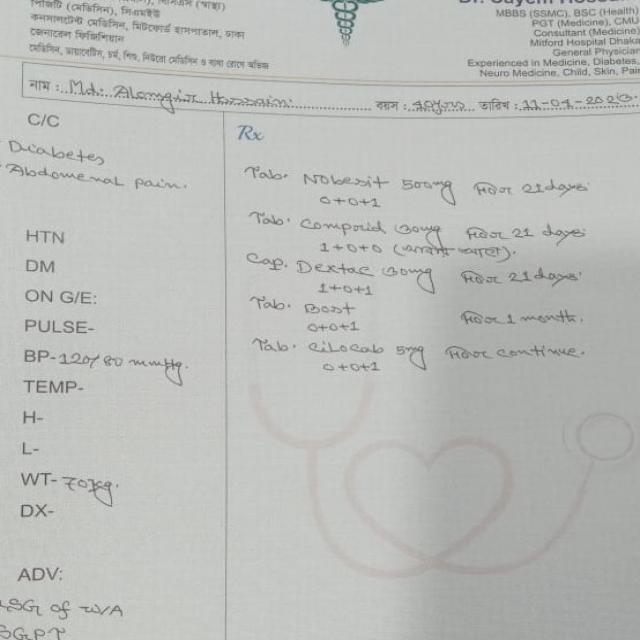 পিজিটি (মেডিসিন), সিএমইউ
কনসালটেন্ট মেডিসিন, মিটফোর্ড হাসপাতাল, ঢাকা
জেনারেল ফিজিশিয়ান
মেডিসিন, ডায়াবেটিস, চর্ম, শিশু, নিউরো মেডিসিন ও ব্যথা রোগে অভিজ্ঞ
MBBS (SSMC), BSC (Health)
PGT (Medicine), CMU
Consultant (Medicine)
Mitford Hospital Dhaka
General Physician
Experienced in Medicine, Diabetes,
Neuro Medicine, Child, Skin, Pain
নাম : Md. Alamgir Hossain বয়স : তারিখ :
C/C
Diabetes
Abdomenal pain.
HTN
DM
ON G/E:
PULSE-
BP-120/80 mmHg.
TEMP-
H-
L-
WT-70kg.
DX-
ADV:
USG of W/A
SGPT
Rx
Tab. Nobesit 500mg for 21 days
0+0+1
Tab. Comprid 30mg for 21 days
1+0+0 (খাবার আগে).
Cap. Dextac 30mg for 21 days
1+0+1
Tab. Bost for 1 month.
0+0+1
Tab. Cilocab 5mg for continue.
0+0+1